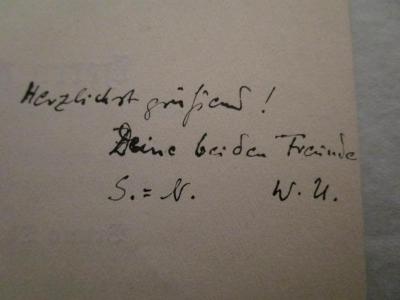 Herzlichst grüßend!
Deine beiden Freunde
S.=N. W.U.